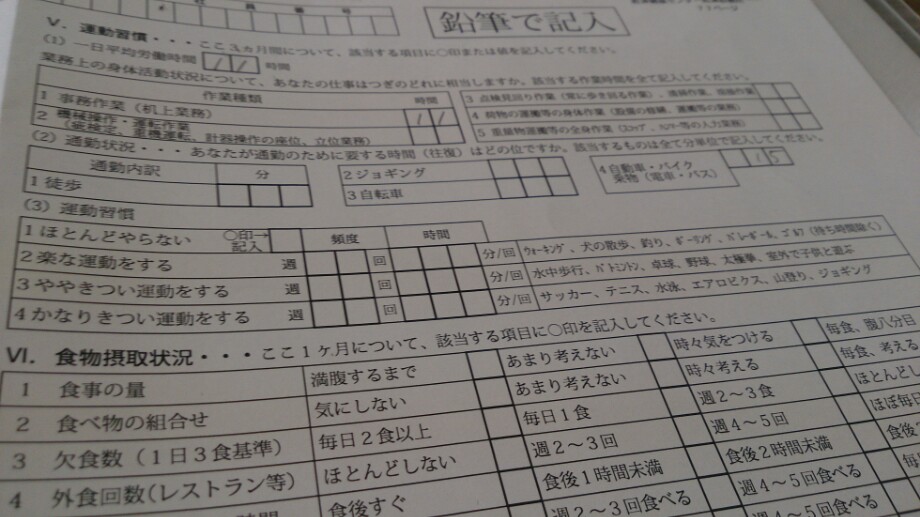 鉛筆で記入
V. 運動習慣・・・ここ3ヵ月間について、該当する項目に○印または値を記入してください。
(1) 一日平均労働時間 11 時間
業務上の身体活動状況について、あなたの仕事はつぎのどれに相当しますか。該当する作業時間を全て記入してください。
作業種類 時間
1 事務作業(机上業務) 11
2 機械操作・運転作業
3 点検見回り作業(常に歩き回る作業)、
4 荷物の運搬等の身体作業
5 重量物運搬等の全身作業
(2) 通勤状況・・・あなたが通勤のために要する時間(往復)はどの位ですか。該当するものは全て分単位で記入してください。
通勤内訳 分
1 徒歩
2 ジョギング
3 自転車
4 自動車・バイク
乗物(電車・バス) 15
(3) 運動習慣
1 ほとんどやらない ○印→記入 頻度 時間
2 楽な運動をする 週 回 分/回 ウォーキング、犬の散歩、釣り、ボーリング、バレーボール、ゴルフ(待ち時間除く)
3 ややきつい運動をする 週 回 分/回 水中歩行、バドミントン、卓球、野球、太極拳、室外で子供と遊ぶ
4 かなりきつい運動をする 週 回 分/回 サッカー、テニス、水泳、エアロビクス、山登り、ジョギング
VI. 食物摂取状況・・・ここ1ヶ月について、該当する項目に○印を記入してください。
1 食事の量 満腹するまで あまり考えない 時々気をつける 毎食、腹八分目
2 食べ物の組合せ 気にしない あまり考えない 時々考える 毎食、考える
3 欠食数(1日3食基準) 毎日2食以上 毎日1食 週2〜3食 ほとんどし
4 外食回数(レストラン等) ほとんどしない 週2〜3回 週4〜5回 ほぼ毎日
食後すぐ 食後1時間未満 食後2時間未満
週2〜3回食べる 週4〜5回食べる
週4〜5回食べる